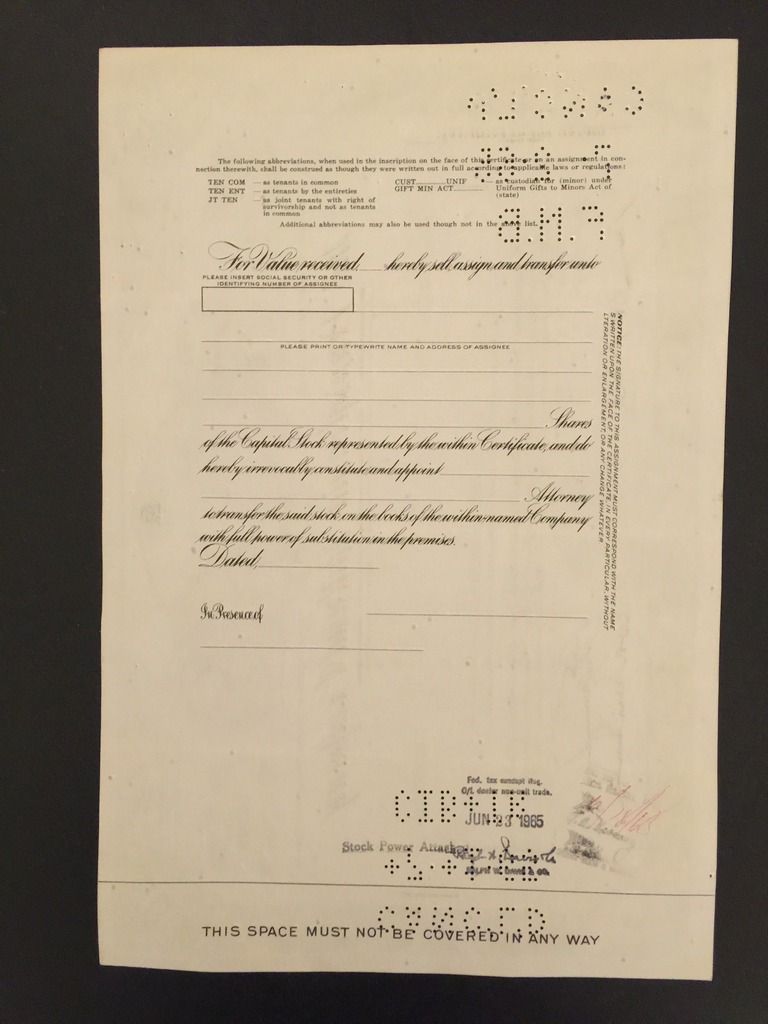 The following abbreviations, when used in the inscription on the face of this certificate or on an assignment in con-
nection therewith, shall be construed as though they were written out in full according to applicable laws or regulations:
TEN COM — as tenants in common
TEN ENT — as tenants by the entireties
JT TEN — as joint tenants with right of
survivorship and not as tenants
in common
CUST. UNIF — as custodian for (minor) under
GIFT MIN ACT Uniform Gifts to Minors Act of
(state)
Additional abbreviations may also be used though not in the above list.
For Value received, hereby sell, assign and transfer unto
PLEASE INSERT SOCIAL SECURITY OR OTHER
IDENTIFYING NUMBER OF ASSIGNEE
PLEASE PRINT OR TYPEWRITE NAME AND ADDRESS OF ASSIGNEE
Shares
of the Capital Stock represented by the within Certificate, and do
hereby irrevocably constitute and appoint
Attorney
to transfer the said stock on the books of the within-named Company
with full power of substitution in the premises.
Dated,
In Presence of
NOTICE: THE SIGNATURE TO THIS ASSIGNMENT MUST CORRESPOND WITH THE NAME
S WRITTEN UPON THE FACE OF THE CERTIFICATE, IN EVERY PARTICULAR, WITHOUT
LTERATION OR ENLARGEMENT, OR ANY CHANGE WHATEVER
Fed. tax exempt
O/L dealer non-unit trade.
JUN 23 1965
Stock Power Attached
RALPH W. DAVIS & CO.
THIS SPACE MUST NOT BE COVERED IN ANY WAY